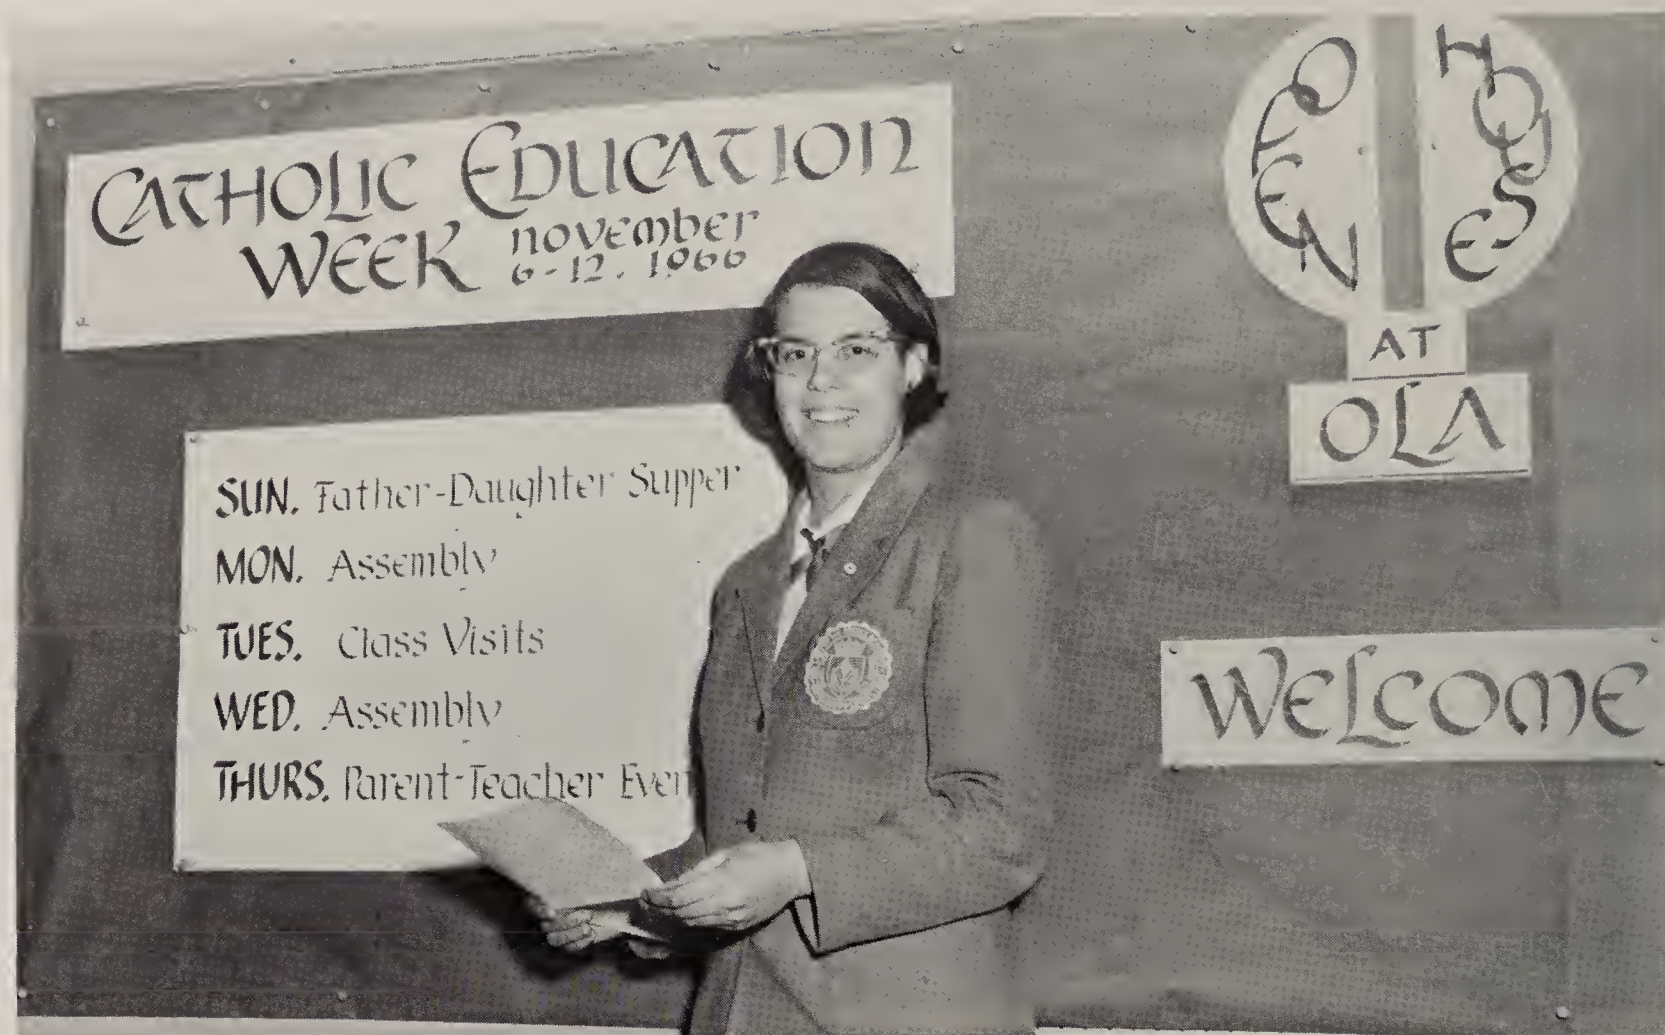 CATHOLIC EDUCATION
WEEK november
6-12, 1966
SUN. Father-Daughter Supper
MON. Assembly
TUES. Class Visits
WED. Assembly
THURS. Parent-Teacher Even
OPEN HOUSE
AT
OLA
WELCOME